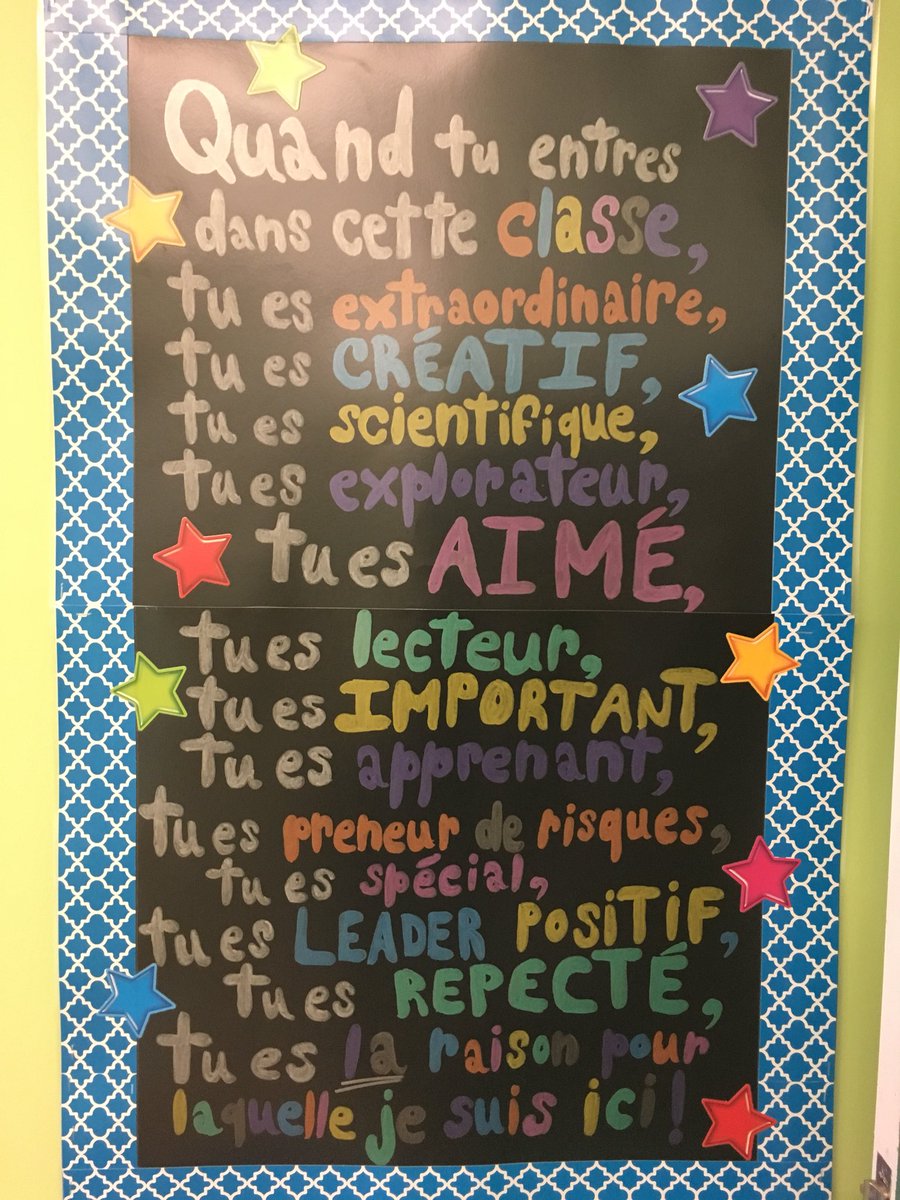 Quand tu entres
dans cette classe,
tu es extraordinaire,
tu es CRÉATIF,
tu es scientifique,
tu es explorateur,
tu es AIMÉ,
tu es lecteur,
tu es IMPORTANT,
tu es apprenant,
tu es preneur de risques,
tu es spécial,
tu es LEADER POSITIF,
tu es REPECTÉ,
tu es la raison pour
laquelle je suis ici!